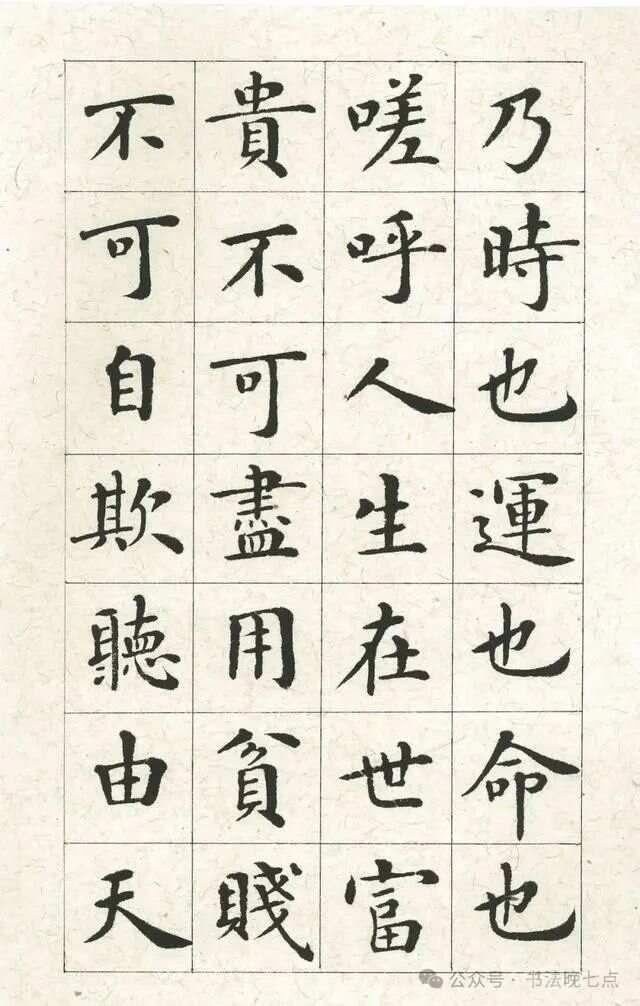 乃時也運也命也
嗟呼人生在世富
貴不可盡用貧賤
不可自欺聽由天
公众号 · 书法晚七点